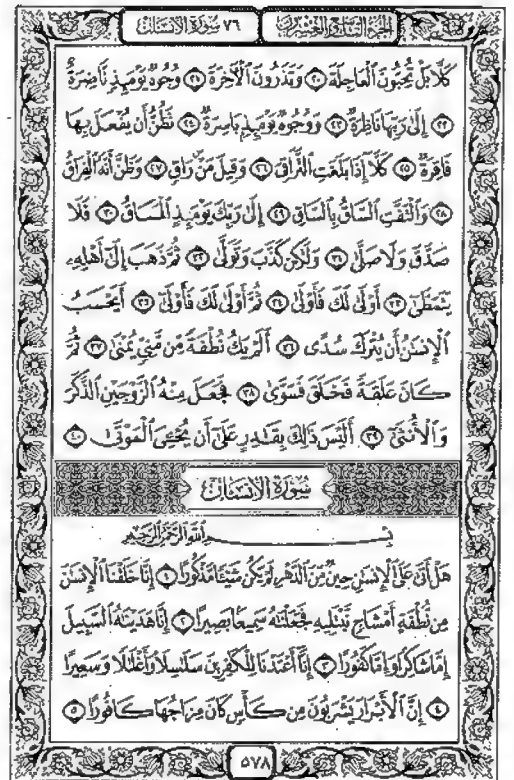 الجزء التاسع والعشرون
٧٦ سورة الإنسان
كَلَّا بَلْ تُحِبُّونَ الْعَاجِلَةَ ۝٢٠ وَتَذَرُونَ الْآخِرَةَ ۝٢١ وُجُوهٌ يَوْمَئِذٍ نَاضِرَةٌ
۝٢٢ إِلَىٰ رَبِّهَا نَاظِرَةٌ ۝٢٣ وَوُجُوهٌ يَوْمَئِذٍ بَاسِرَةٌ ۝٢٤ تَظُنُّ أَن يُفْعَلَ بِهَا
فَاقِرَةٌ ۝٢٥ كَلَّا إِذَا بَلَغَتِ التَّرَاقِيَ ۝٢٦ وَقِيلَ مَنْ رَاقٍ ۝٢٧ وَظَنَّ أَنَّهُ الْفِرَاقُ
۝٢٨ وَالْتَفَّتِ السَّاقُ بِالسَّاقِ ۝٢٩ إِلَىٰ رَبِّكَ يَوْمَئِذٍ الْمَسَاقُ ۝٣٠ فَلَا
صَدَّقَ وَلَا صَلَّىٰ ۝٣١ وَلَٰكِن كَذَّبَ وَتَوَلَّىٰ ۝٣٢ ثُمَّ ذَهَبَ إِلَىٰ أَهْلِهِ
يَتَمَطَّىٰ ۝٣٣ أَوْلَىٰ لَكَ فَأَوْلَىٰ ۝٣٤ ثُمَّ أَوْلَىٰ لَكَ فَأَوْلَىٰ ۝٣٥ أَيَحْسَبُ
الْإِنسَٰنُ أَن يُتْرَكَ سُدًى ۝٣٦ أَلَمْ يَكُ نُطْفَةً مِّن مَّنِيٍّ يُمْنَىٰ ۝٣٧ ثُمَّ
كَانَ عَلَقَةً فَخَلَقَ فَسَوَّىٰ ۝٣٨ فَجَعَلَ مِنْهُ الزَّوْجَيْنِ الذَّكَرَ
وَالْأُنثَىٰ ۝٣٩ أَلَيْسَ ذَٰلِكَ بِقَٰدِرٍ عَلَىٰ أَن يُحْـِۧيَ الْمَوْتَىٰ ۝٤٠
سورة الإنسان
بِسْمِ اللَّهِ الرَّحْمَٰنِ الرَّحِيمِ
هَلْ أَتَىٰ عَلَى الْإِنسَٰنِ حِينٌ مِّنَ الدَّهْرِ لَمْ يَكُن شَيْـًٔا مَّذْكُورًا ۝١ إِنَّا خَلَقْنَا الْإِنسَٰنَ
مِن نُّطْفَةٍ أَمْشَاجٍ نَّبْتَلِيهِ فَجَعَلْنَٰهُ سَمِيعًا بَصِيرًا ۝٢ إِنَّا هَدَيْنَٰهُ السَّبِيلَ
إِمَّا شَاكِرًا وَإِمَّا كَفُورًا ۝٣ إِنَّا أَعْتَدْنَا لِلْكَٰفِرِينَ سَلَٰسِلَا وَأَغْلَٰلًا وَسَعِيرًا
۝٤ إِنَّ الْأَبْرَارَ يَشْرَبُونَ مِن كَأْسٍ كَانَ مِزَاجُهَا كَافُورًا ۝٥
٥٧٨